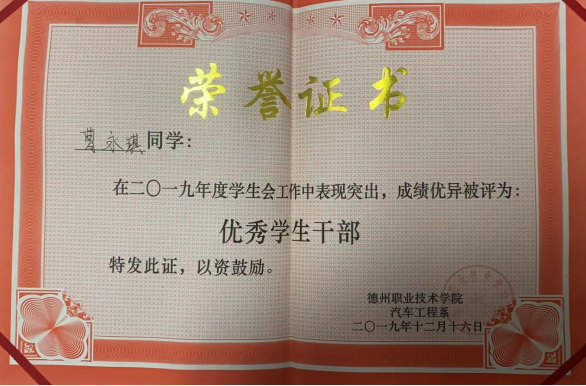 荣誉证书
曹永琪同学：
在二〇一九年度学生会工作中表现突出，成绩优异被评为：
优秀学生干部
特发此证，以资鼓励。
德州职业技术学院
汽车工程系
二〇一九年十二月十六日